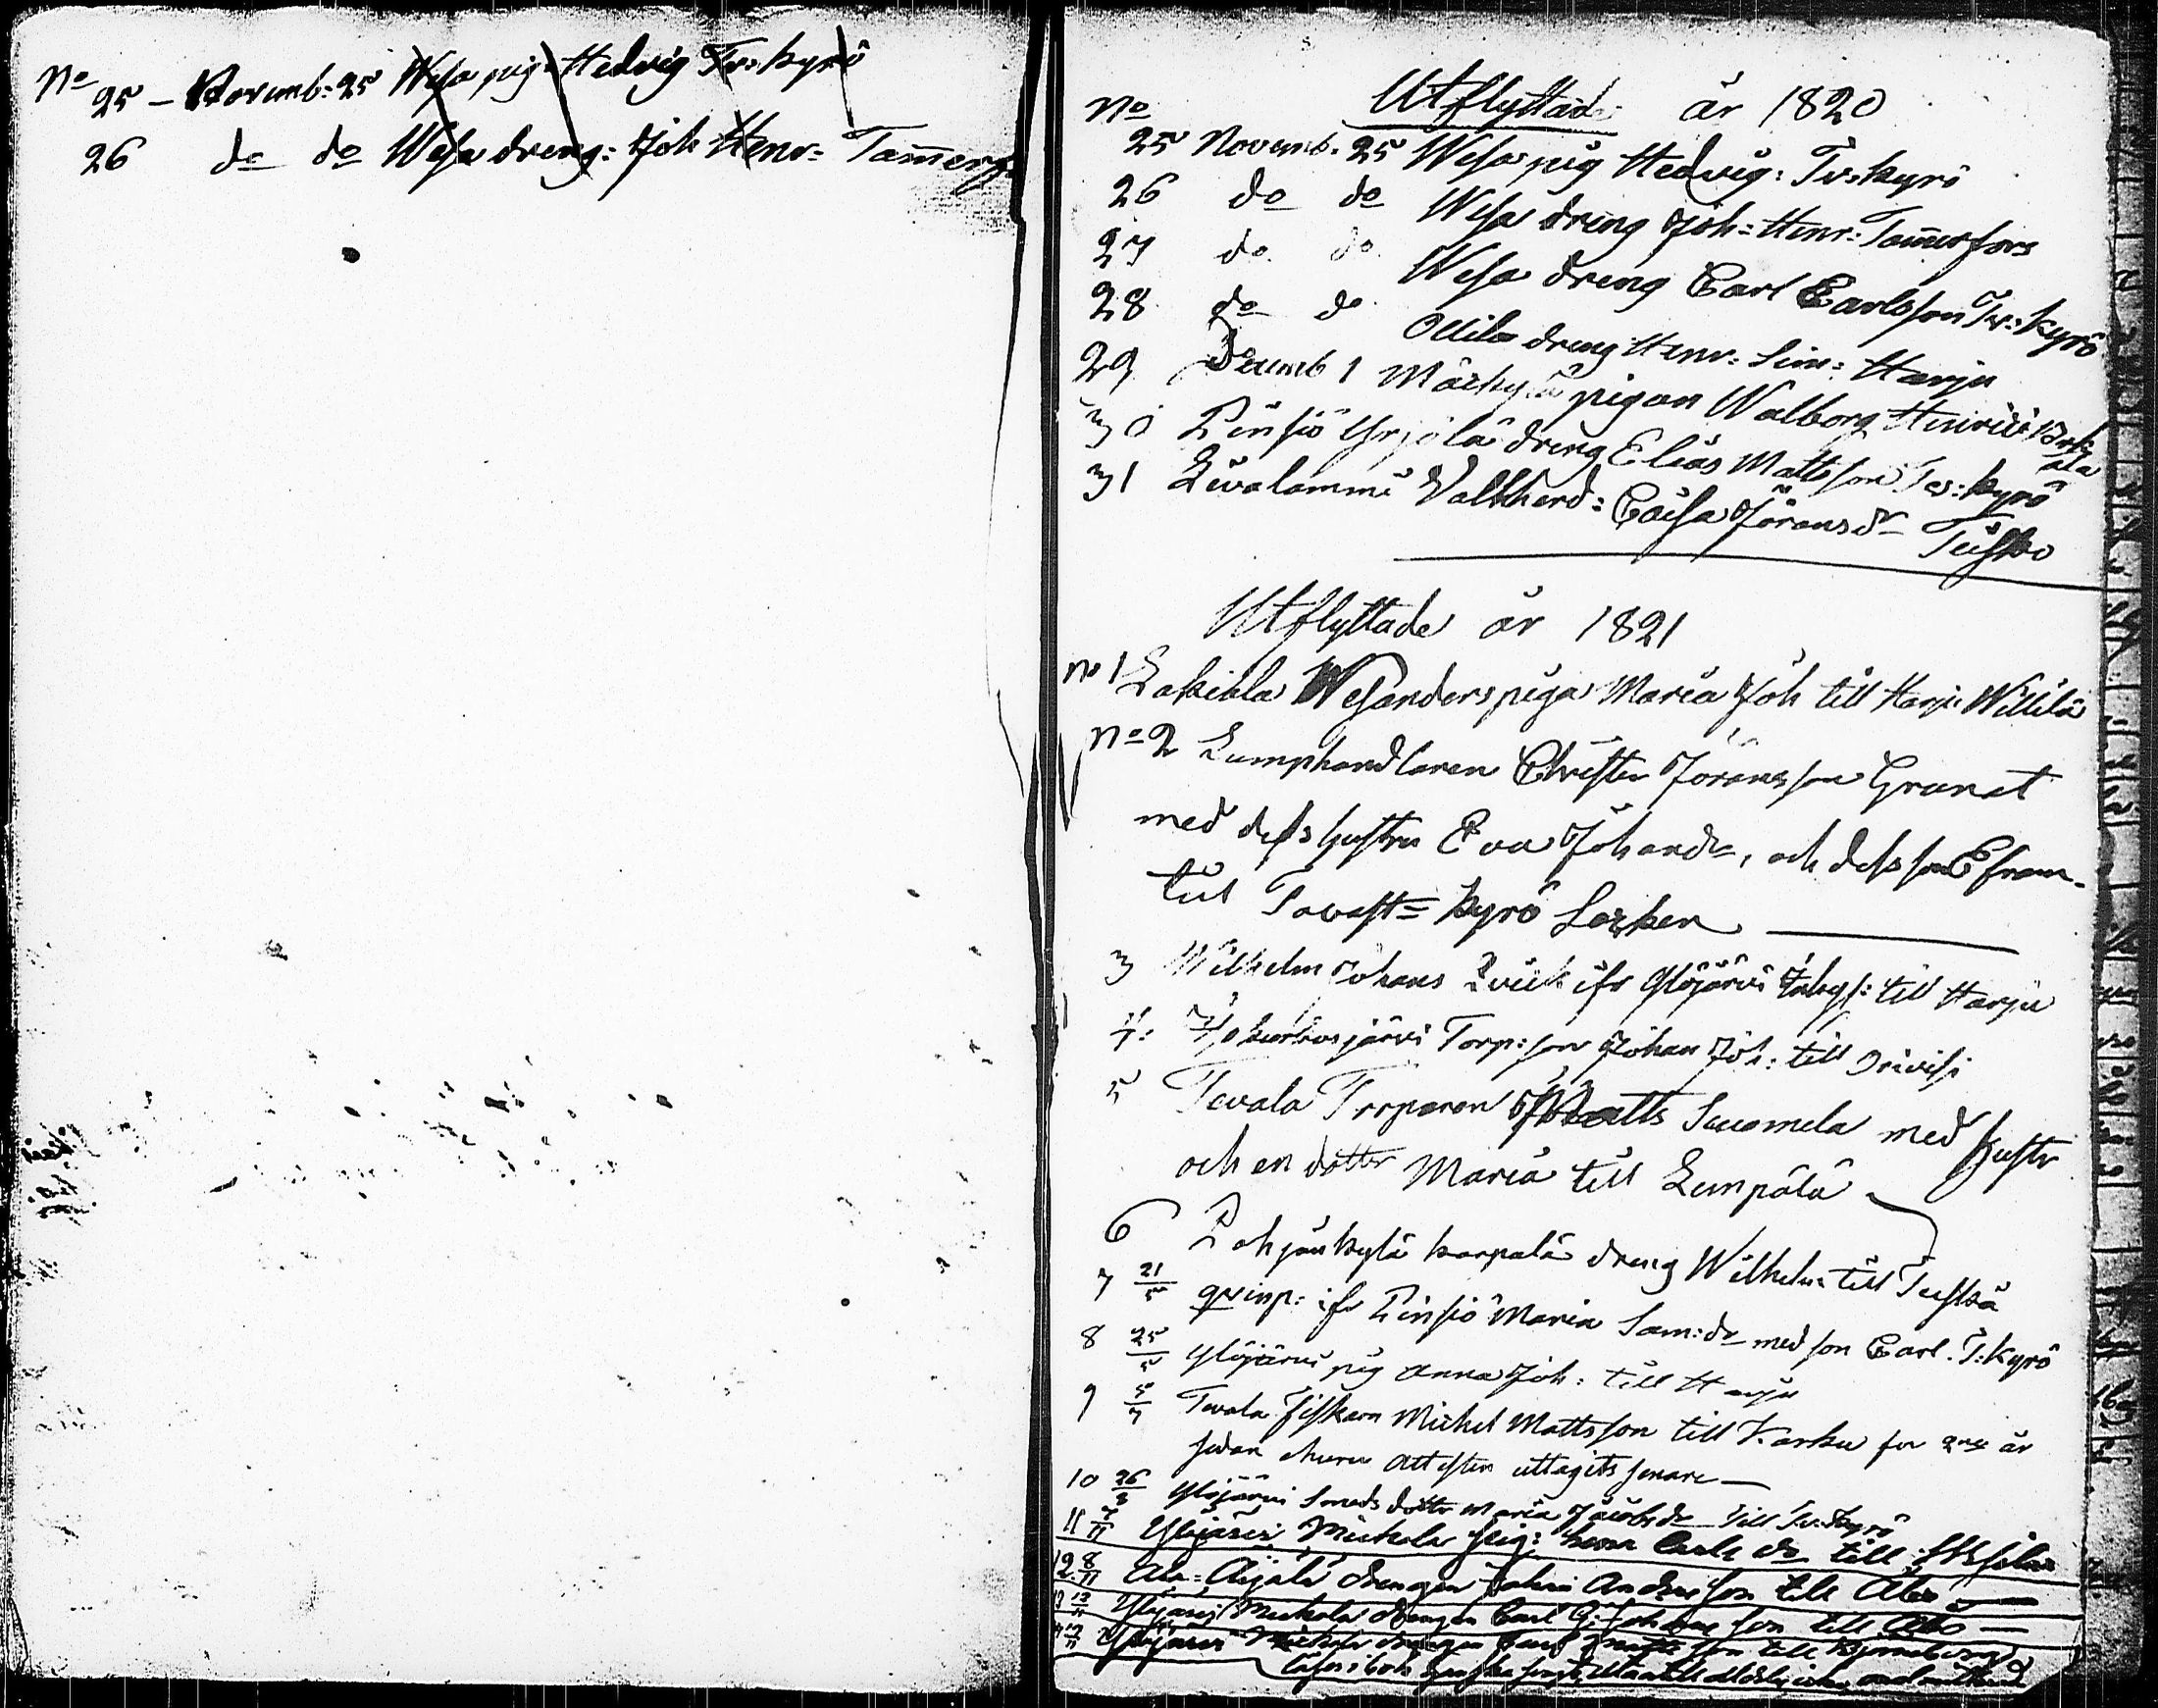 No 25 – Novemb: 25 Wesa pig: Hedvig Tv: kyrö
26 do do Wesa dreng: Joh Henr= Tam̄erf:
No Utflyttade år 1820
25 Novemb. 25 Wesa pig Hedvig: Tv: kyrö
26 do do Wesa dreng Joh= Henr: Tam̄erfors
27 do do Wesa dreng Carl Carlsson Tv: kyrö
28 do do Ollila dreng Henr: Sim: Harju
29 Decemb 1 Mäkylä pigan Walborg Henrici Birkala
30 Pinsiö Yrjölä dreng Elias Mattsson Tv: kyrö
31 Livalammi Vallherd: Caisa Jöransdr Teisko
Utflyttade år 1821
No 1 Lakiala Wesanders piga Maria Joh till Harju Willilä
No 2 Lumphandlaren Christer Jöransson Granat
med dess hustru Eva Johansdr, och dess son Efraim
till Tavast= kyrö Socken
3 Wilhelm Johans Qvick ifr Ylöjärvi till Harju
4: Kurkusjärvi Torp: son Johan Joh: till Orivesi
5 Tevala Torparen Matts Suomela med hustr
och en dotter Maria till Lempälä
6 Pohjankylä karpalä dreng Wilhelm till Teiskå
7 21/5 qvinp: ifr Pinsiö Maria Sam: dr med son Carl. T: Kyrö
8 25/5 Ylöjärvi pig Anna Joh: till Harju
9 5/7 Tevala Fiskarn Michel Mattsson till Karku for 2ne år
sedan ehuru attesten uttagits senare —
10 26/8 Ylöjärvi Smeds dotter Maria Jacobsdr till Tv: Kyrö
11 Ylöjärvi Mickola pig: till
12 8/11 Ala= Äijälä drengen Johan Andersson till Åbo —
13 12/11 Ylöjärvi Mickola drengen Carl G: Johansson till Åbo —
Ylöjärvi Mickola drengen Carl till Björneborg